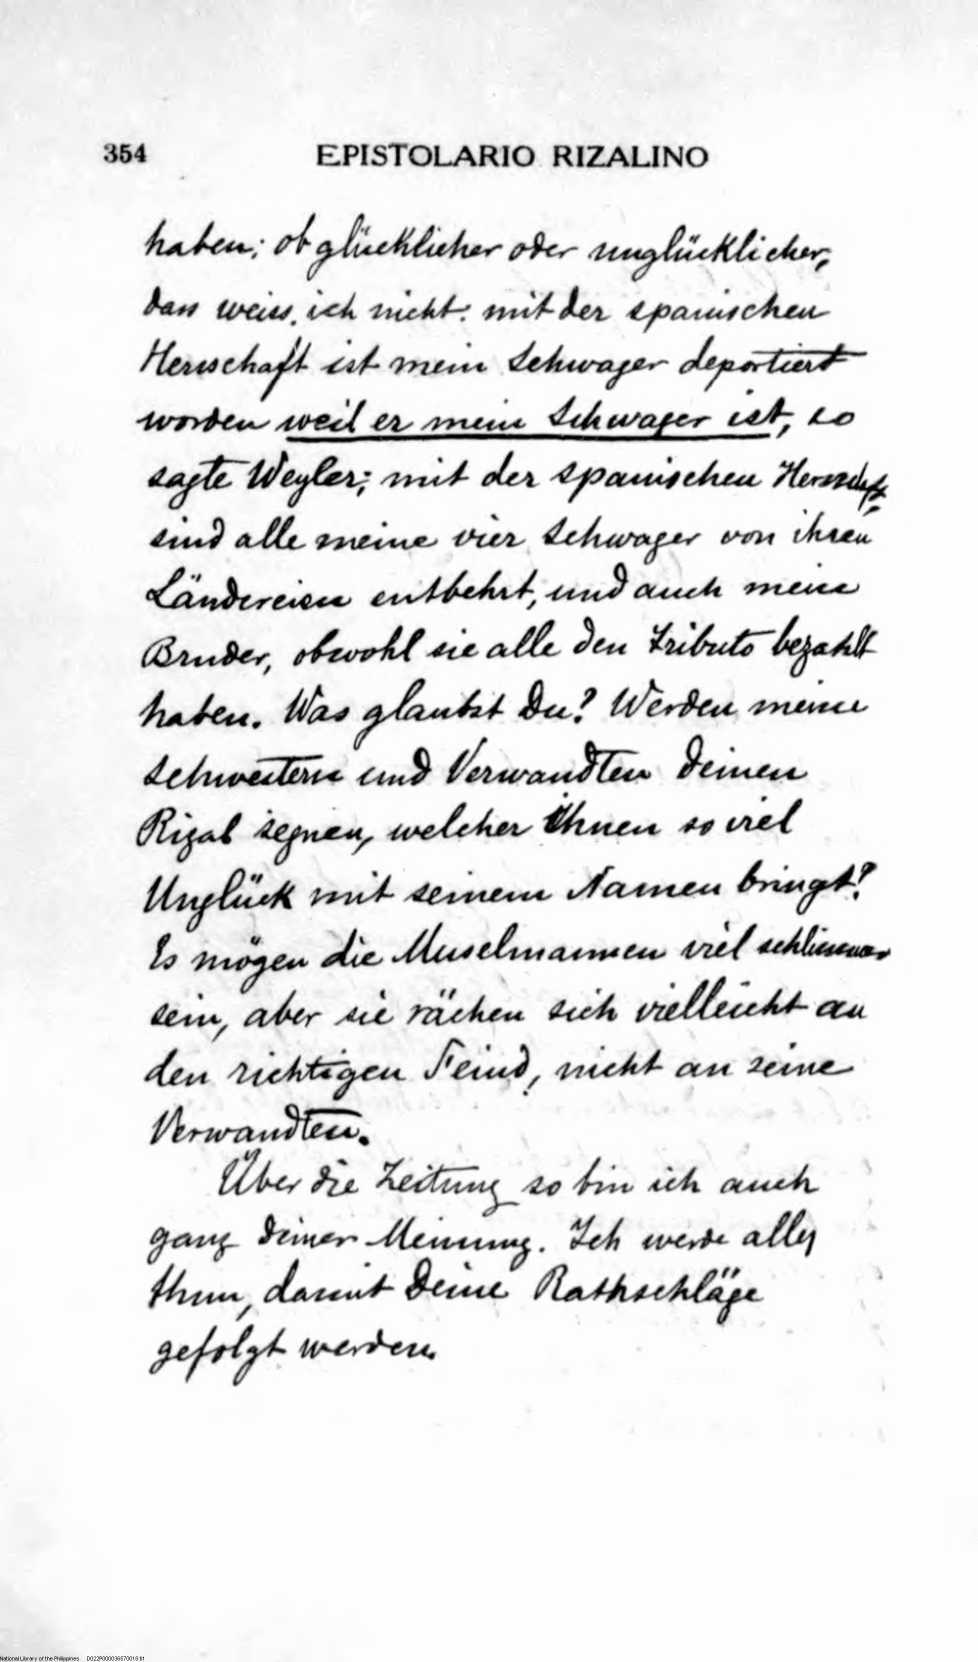 354 EPISTOLARIO RIZALINO
haben; ob glücklicher oder unglücklicher,
das weiss ich nicht: mit der spanischen
Herrschaft ist mein Schwager deportiert
worden weil er mein Schwager ist, so
sagte Weyler; mit der spanischen Herrschaft
sind alle meine vier Schwager von ihren
Ländereien entbehrt, und auch mein
Bruder, obwohl sie alle den Tributo bezahlt
haben. Was glaubst Du? Werden meine
Schwestern und Verwandten deinen
Rizal segnen, welcher Ihnen so viel
Unglück mit seinem Namen bringt?
Es mögen die Muselmannen viel schlimmer
sein, aber sie rächen sich vielleicht an
den richtigen Feind, nicht an seine
Verwandten.
Über die Zeitung so bin ich auch
ganz deiner Meinung. Ich werde alles
thun, damit Deine Rathschläge
gefolgt werden.
National Library of the Philippines